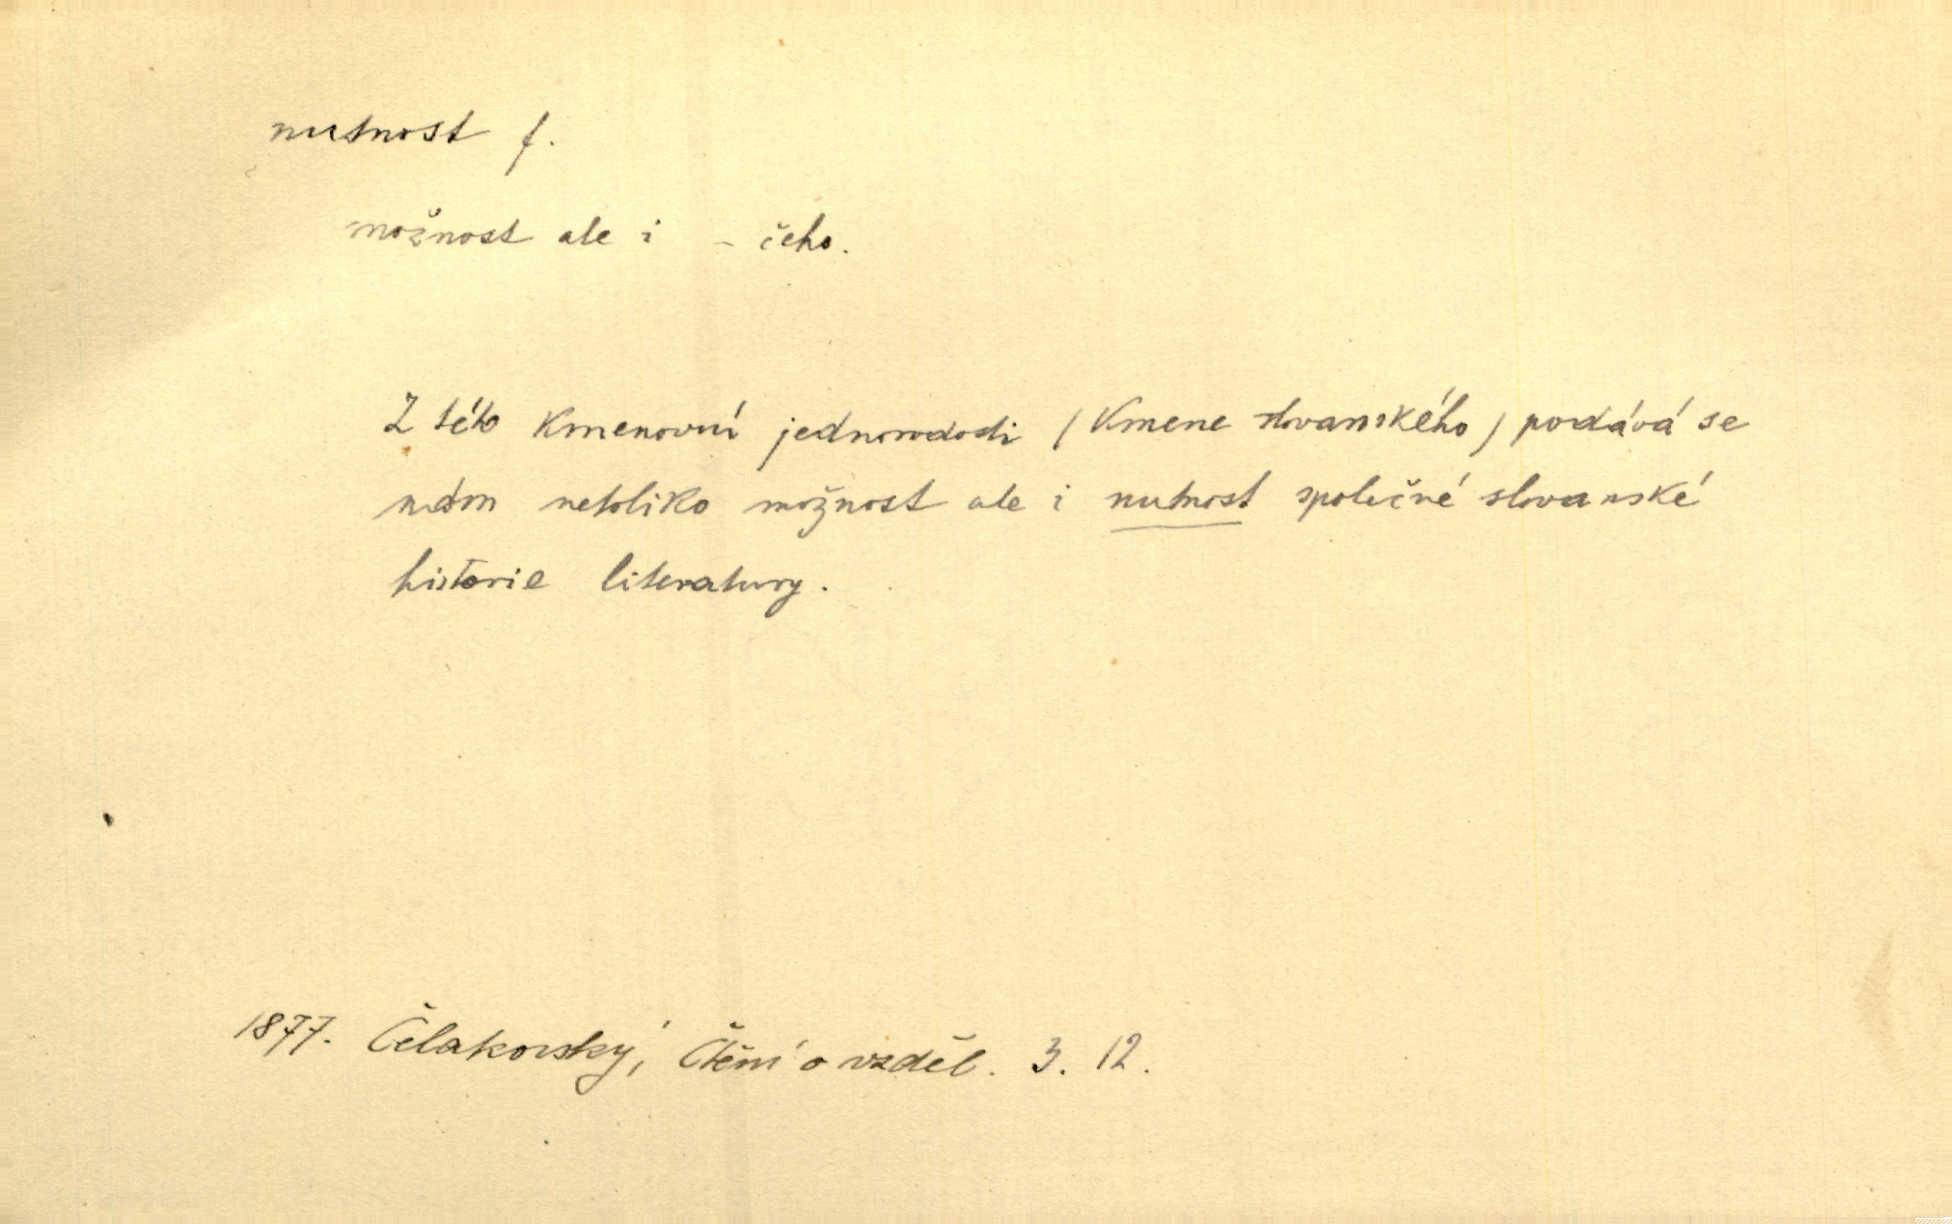 nutnost f.
možnost ale i – čeho.
Z této kmenovní jednorodosti / kmene slovanského / podává se
nám netoliko možnost ale i nutnost společné slovanské
historie literatury.
1877. Čelakovský, Čtení o vzděl. 3. 12.